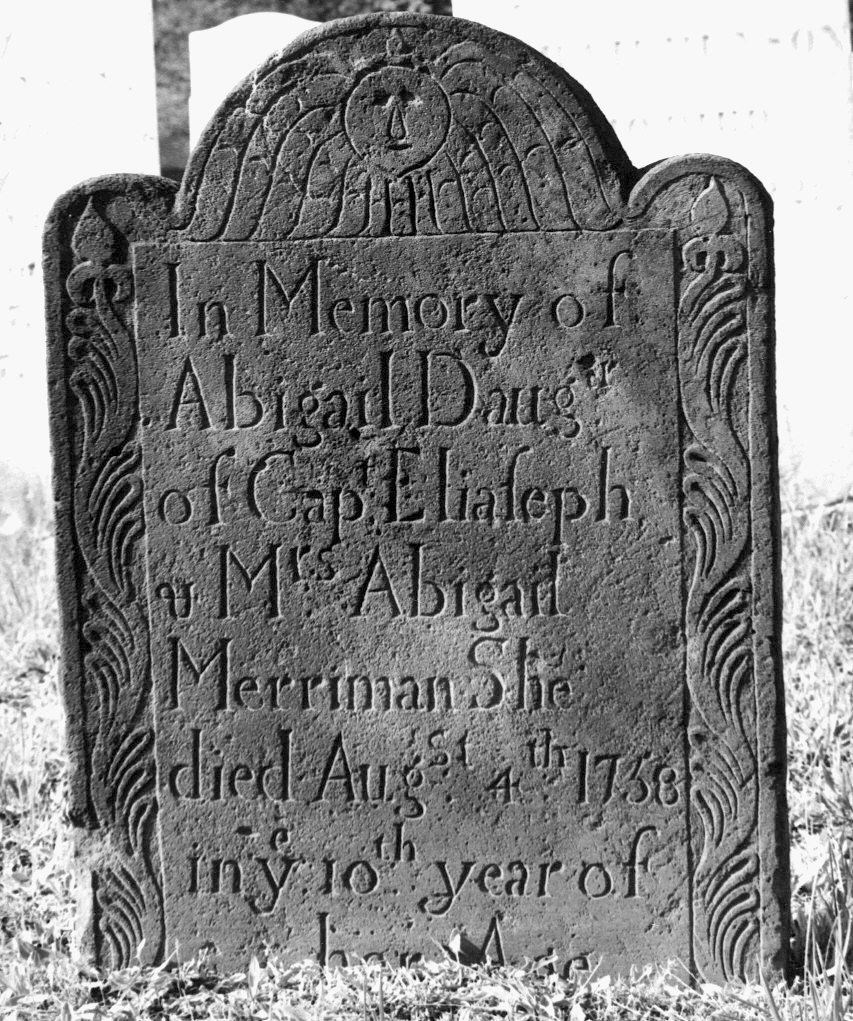 In Memory of
Abigail Daugᵗʳ
of Capᵗ Eliaſeph
& Mʳˢ Abigail
Merriman She
died Augˢᵗ 4ᵗʰ 1758
in yᵉ 10ᵗʰ year of
her Age